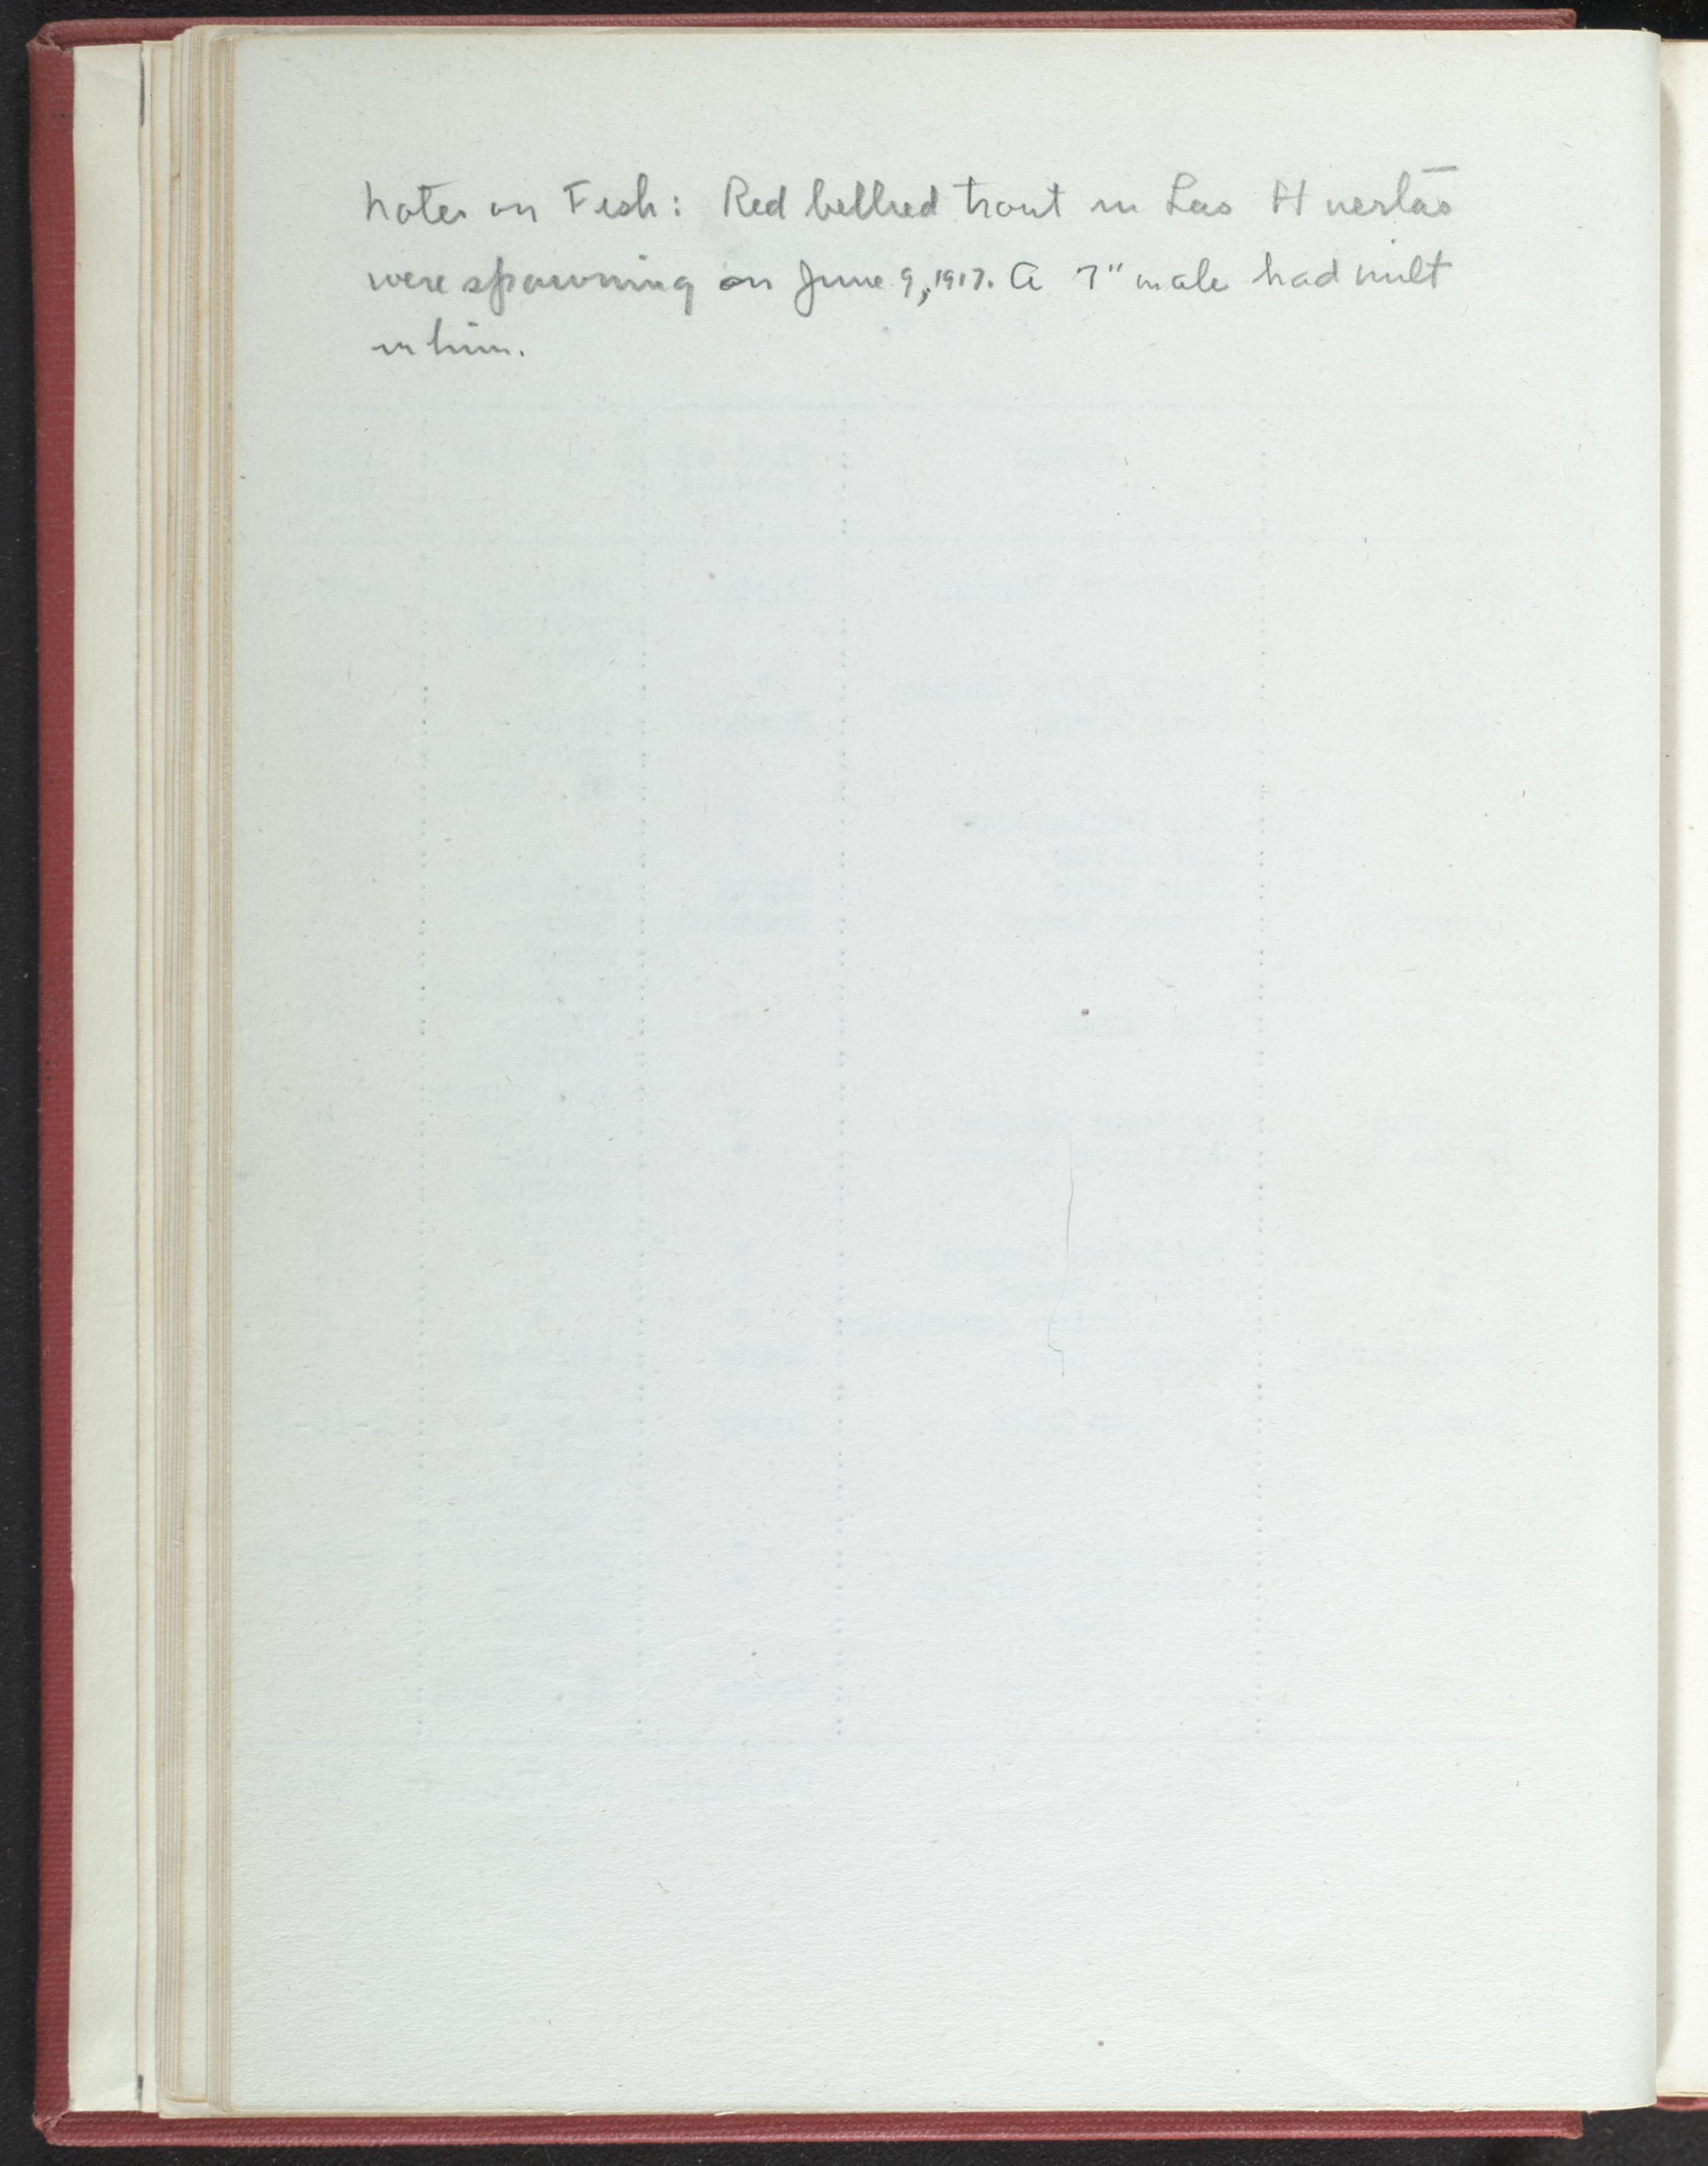 Notes on Fish: Red bellied trout in Las Huertas
were spawning on June 9, 1917. A 7" male had milt
in him.